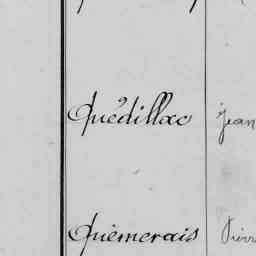 Quédillac Jean
Quémerais Pierr